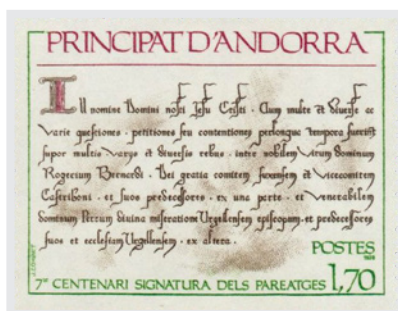 PRINCIPAT D'ANDORRA
In nomine Domini nostri Jesu Cristi. Cum multe et diverse ac
varie questiones. petitiones seu contentiones perlongue tempora fuerint
super multis. varys et diversis rebus. inter nobilem virum dominum
Rogerium Bernardi. Dei gratia comitem fuxensem et vicecomitem
Castriboni. et suos predecessores. ex una parte. et venerabilem
dominum Petrum divina miseratione Urgellensem episcopum. et predecessores
suos et ecclesiam Urgellensem. ex altera.
POSTES
7e CENTENARI SIGNATURA DELS PAREATGES 1,70